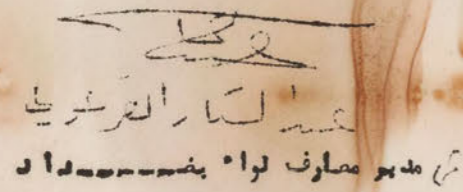 عبد الستار القرغولي
مدير معارف لواء بغـــــــداد